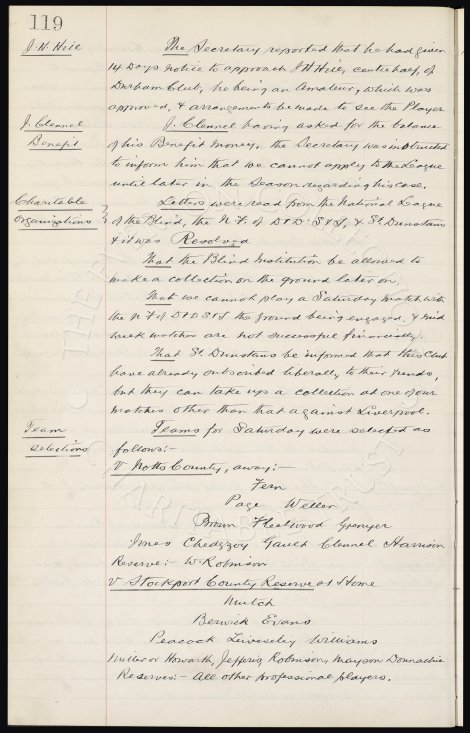 119
J. H. Hill
The Secretary reported that he had given
14 Days notice to approach J H Hill, centre half, of
Durham Club, he being an Amateur, which was
approved, & arrangements be made to see the Player
J. Clennel
Benefit
J. Clennel having asked for the balance
of his Benefit money, the Secretary was instructed
to inform him that we cannot apply to the League
until later in the Season regarding his case.
Charitable
Organizations
Letters were read from the National League
of the Blind, the N. F. of D & D. S & S, & St Dunstans
& it was Resolved
That the Blind Institution be allowed to
make a collection on the ground later on,
That we cannot play a Saturday match with
the N F of D & D S & S the ground being engaged, & mid
week matches are not successful financially.
That St. Dunstans be informed that this Club
have already subscribed liberally to their funds,
but they can take up a collection at one of our
matches other than that against Liverpool.
Team
Selections
Teams for Saturday were selected as
follows:-
V Notts County, away:-
Fern
Page Weller
Brown Fleetwood Grenyer
Jones Chedgzoy Gault Clennel Harrison
Reserve:- W Robinson
V Stockport County Reserve at Home
Mutch
Berwick Evans
Peacock Leivesley Williams
Miller or Howarth, Jefferis, Robinson, Mayson Donnachie
Reserves:- All other professional players.